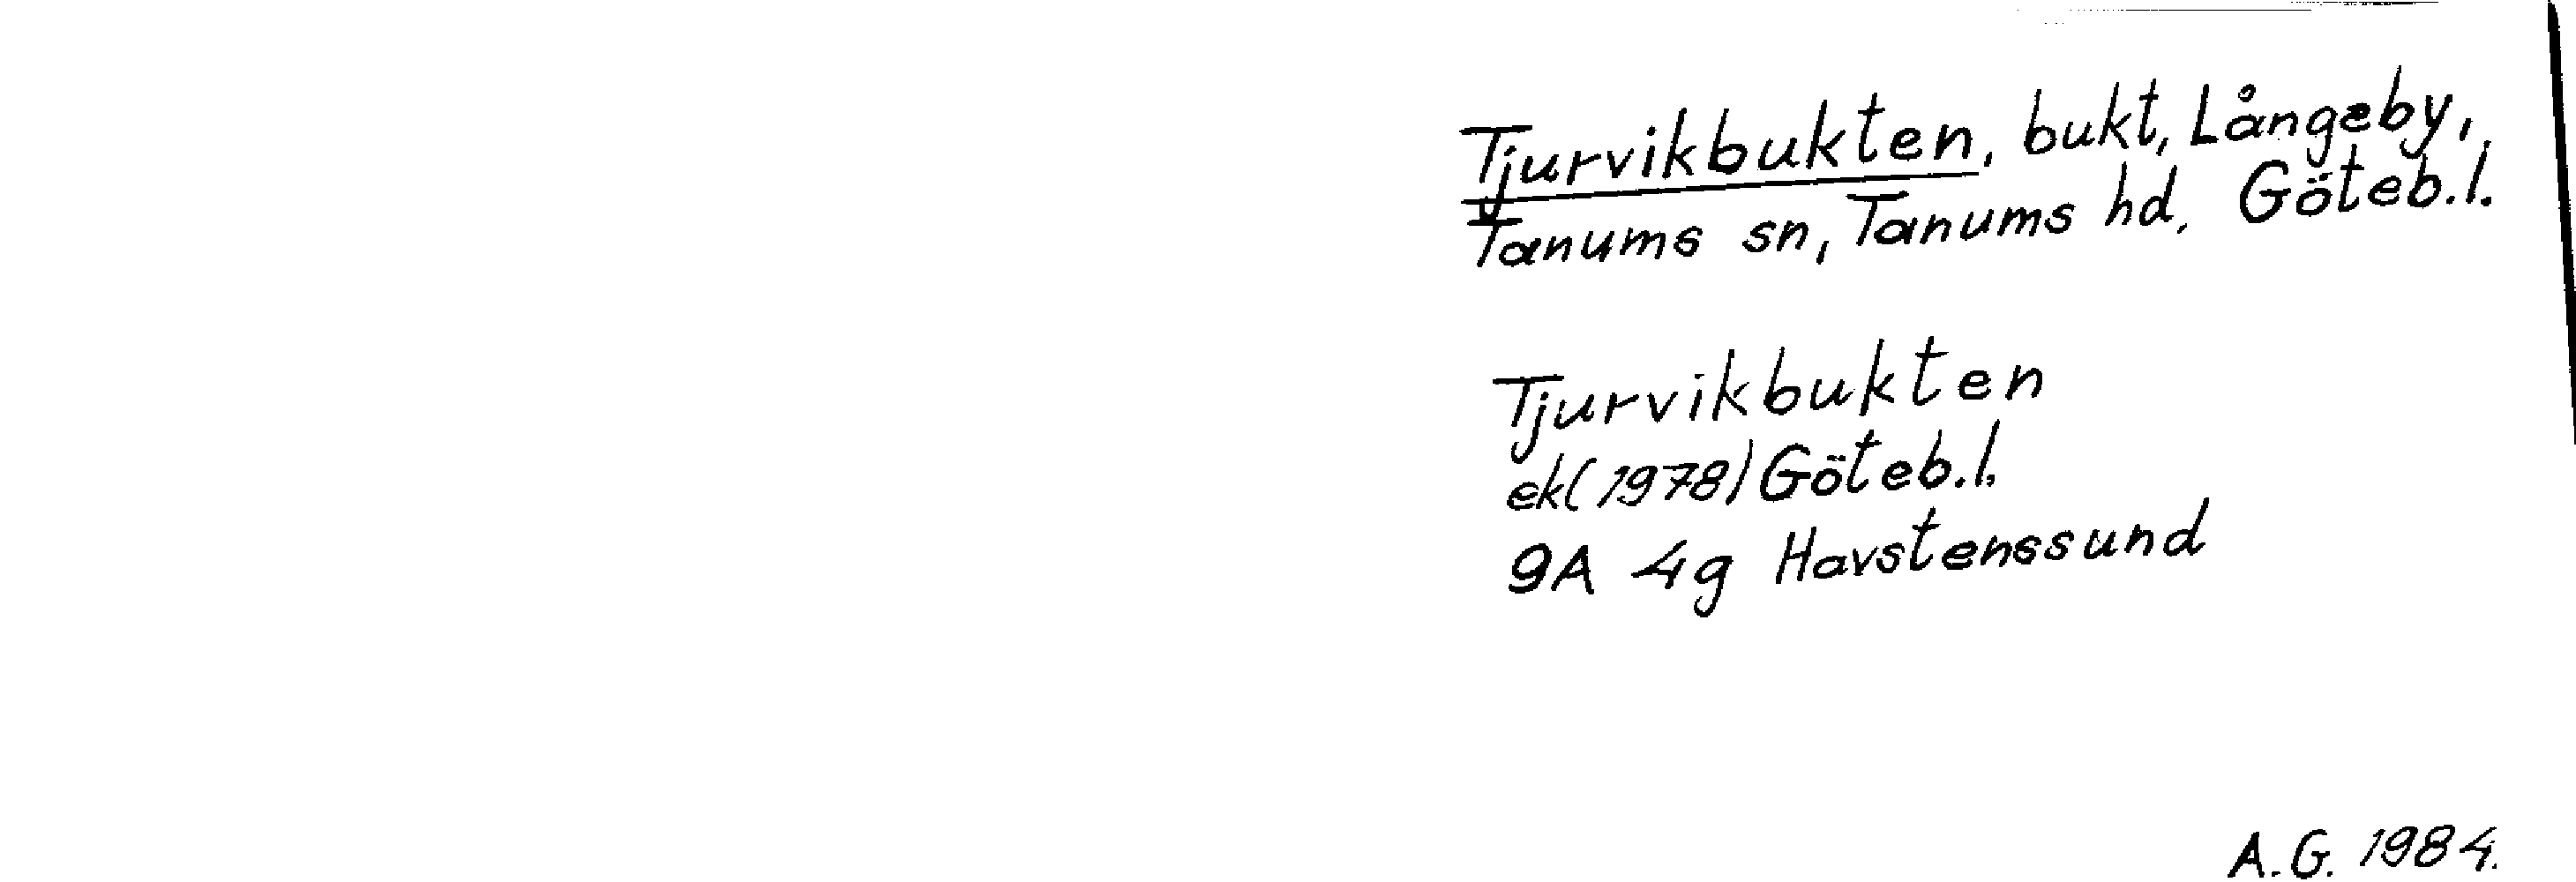 Tjurvikbukten, bukt, Långeby,
Tanums sn, Tanums hd, Göteb.l.
Tjurvikbukten
ek(1978) Göteb.l.
9A 4g Havstenssund
A.G. 1984.